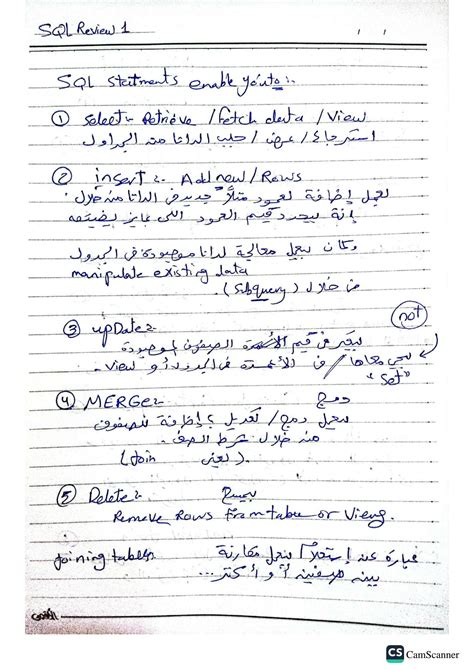 SQL Review 1
/ /
SQL statments enable you to :-
① Select:- Retrieve / fetch data / View
استرجاع / عرض / جلب الداتا من الجداول
② insert :- Add new / Rows
بتعمل إضافة لعمود مثلاً جديد في الداتا من خلال
إنة بيحدد قيم العمود اللي عايز يضيفه
وكمان بتعمل معالجة لداتا موجودة في الجدول
manipulate existing data
من خلال (subquery).
③ upDate:
not
بيغير في قيم الصفوف الموجودة
بيجي معاها / في الأعمدة في الجدول أو view.
"Set"
④ MERGE:
دمج
بتعمل دمج / تعديل / إضافة للصفوف
من خلال شرط الصف.
(يعني Join).
⑤ Delete:
بيمسح
Remove Rows from table or View.
Joining tables
عبارة عن إستعلام بتعمل مقارنة
بين صفين أو أكتر...
CS CamScanner